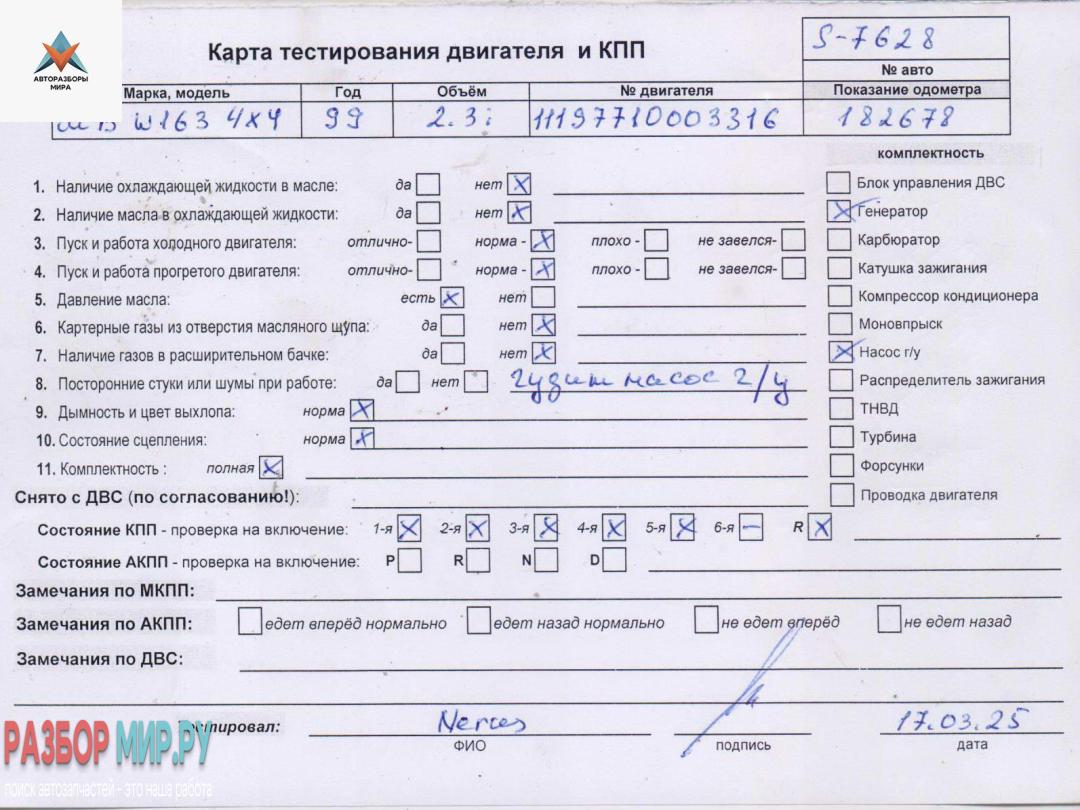 АВТОРАЗБОРЫ
МИРА
Карта тестирования двигателя и КПП
S-7628
№ авто
Марка, модель Год Объём № двигателя Показание одометра
W163 4x4 99 2.3i 11197710003316 182678
комплектность
1. Наличие охлаждающей жидкости в масле: да нет X
Блок управления ДВС
2. Наличие масла в охлаждающей жидкости: да нет X
X Генератор
3. Пуск и работа холодного двигателя: отлично- норма - X плохо - не завелся-
Карбюратор
4. Пуск и работа прогретого двигателя: отлично- норма - X плохо - не завелся-
Катушка зажигания
5. Давление масла: есть X нет
Компрессор кондиционера
6. Картерные газы из отверстия масляного щупа: да нет X
Моновпрыск
7. Наличие газов в расширительном бачке: да нет X
X Насос г/у
8. Посторонние стуки или шумы при работе: да нет гудит насос г/у
Распределитель зажигания
9. Дымность и цвет выхлопа: норма X
ТНВД
10. Состояние сцепления: норма X
Турбина
11. Комплектность : полная X
Форсунки
Снято с ДВС (по согласованию!):
Проводка двигателя
Состояние КПП - проверка на включение: 1-я X 2-я X 3-я X 4-я X 5-я X 6-я – R X
Состояние АКПП - проверка на включение: P R N D
Замечания по МКПП:
Замечания по АКПП: едет вперёд нормально едет назад нормально не едет вперёд не едет назад
Замечания по ДВС:
Тестировал: 17.03.25
ФИО подпись дата
РАЗБОР МИР.РУ
поиск автозапчастей - это наша работа